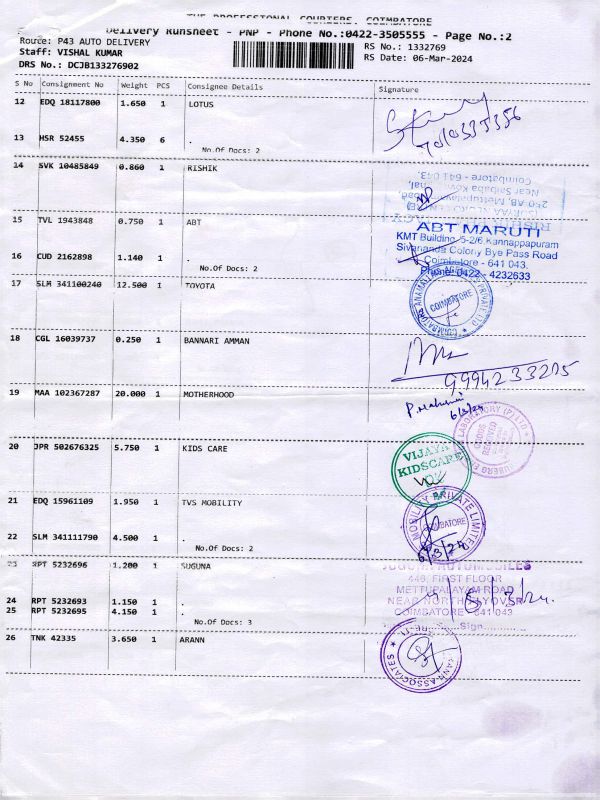 THE PROFESSIONAL COURIERS, COIMBATORE
Delivery Runsheet - PNP - Phone No.:0422-3505555 - Page No.:2
Route: P43 AUTO DELIVERY
RS No.: 1332769
Staff: VISHAL KUMAR
RS Date: 06-Mar-2024
DRS No.: DCJB133276902
S No Consignment No Weight PCS Consignee Details Signature
12 EDQ 18117800 1.650 1 LOTUS
13 HSR 52455 4.350 6 .
No.Of Docs: 2
14 SVK 10485849 0.860 1 RISHIK
Coimbatore - 641 043.
Near Saibaba Kovil
15 TVL 1943848 0.750 1 ABT
ABT MARUTI
KMT Building, 5-2/6, Kannappapuram
Sivananda Colony Bye Pass Road
Coimbatore - 641 043.
Phone: 0422 - 4232633
16 CUD 2162898 1.140 1 .
No.Of Docs: 2
17 SLM 341100240 12.500 1 TOYOTA
COIMBATORE
18 CGL 16039737 0.250 1 BANNARI AMMAN
9994233215
19 MAA 102367287 20.000 1 MOTHERHOOD
6/3/24
GOODS RECEIVED
20 JPR 502676325 5.750 1 KIDS CARE
VIJAYA
KIDSCARE
21 EDQ 15961109 1.950 1 TVS MOBILITY
MOBILITY PRIVATE LIMITED
COIMBATORE
6/3/24
22 SLM 341111790 4.500 1 .
No.Of Docs: 2
23 RPT 5232696 1.200 1 SUGUNA
446, FIRST FLOOR
METTUPALAYAM ROAD
NEAR NORTH FLYOVER
COIMBATORE - 641 043.
Sign
24 RPT 5232693 1.150 1 .
25 RPT 5232695 4.150 1 .
No.Of Docs: 3
26 TNK 42335 3.650 1 ARANN
ASSOCIATES